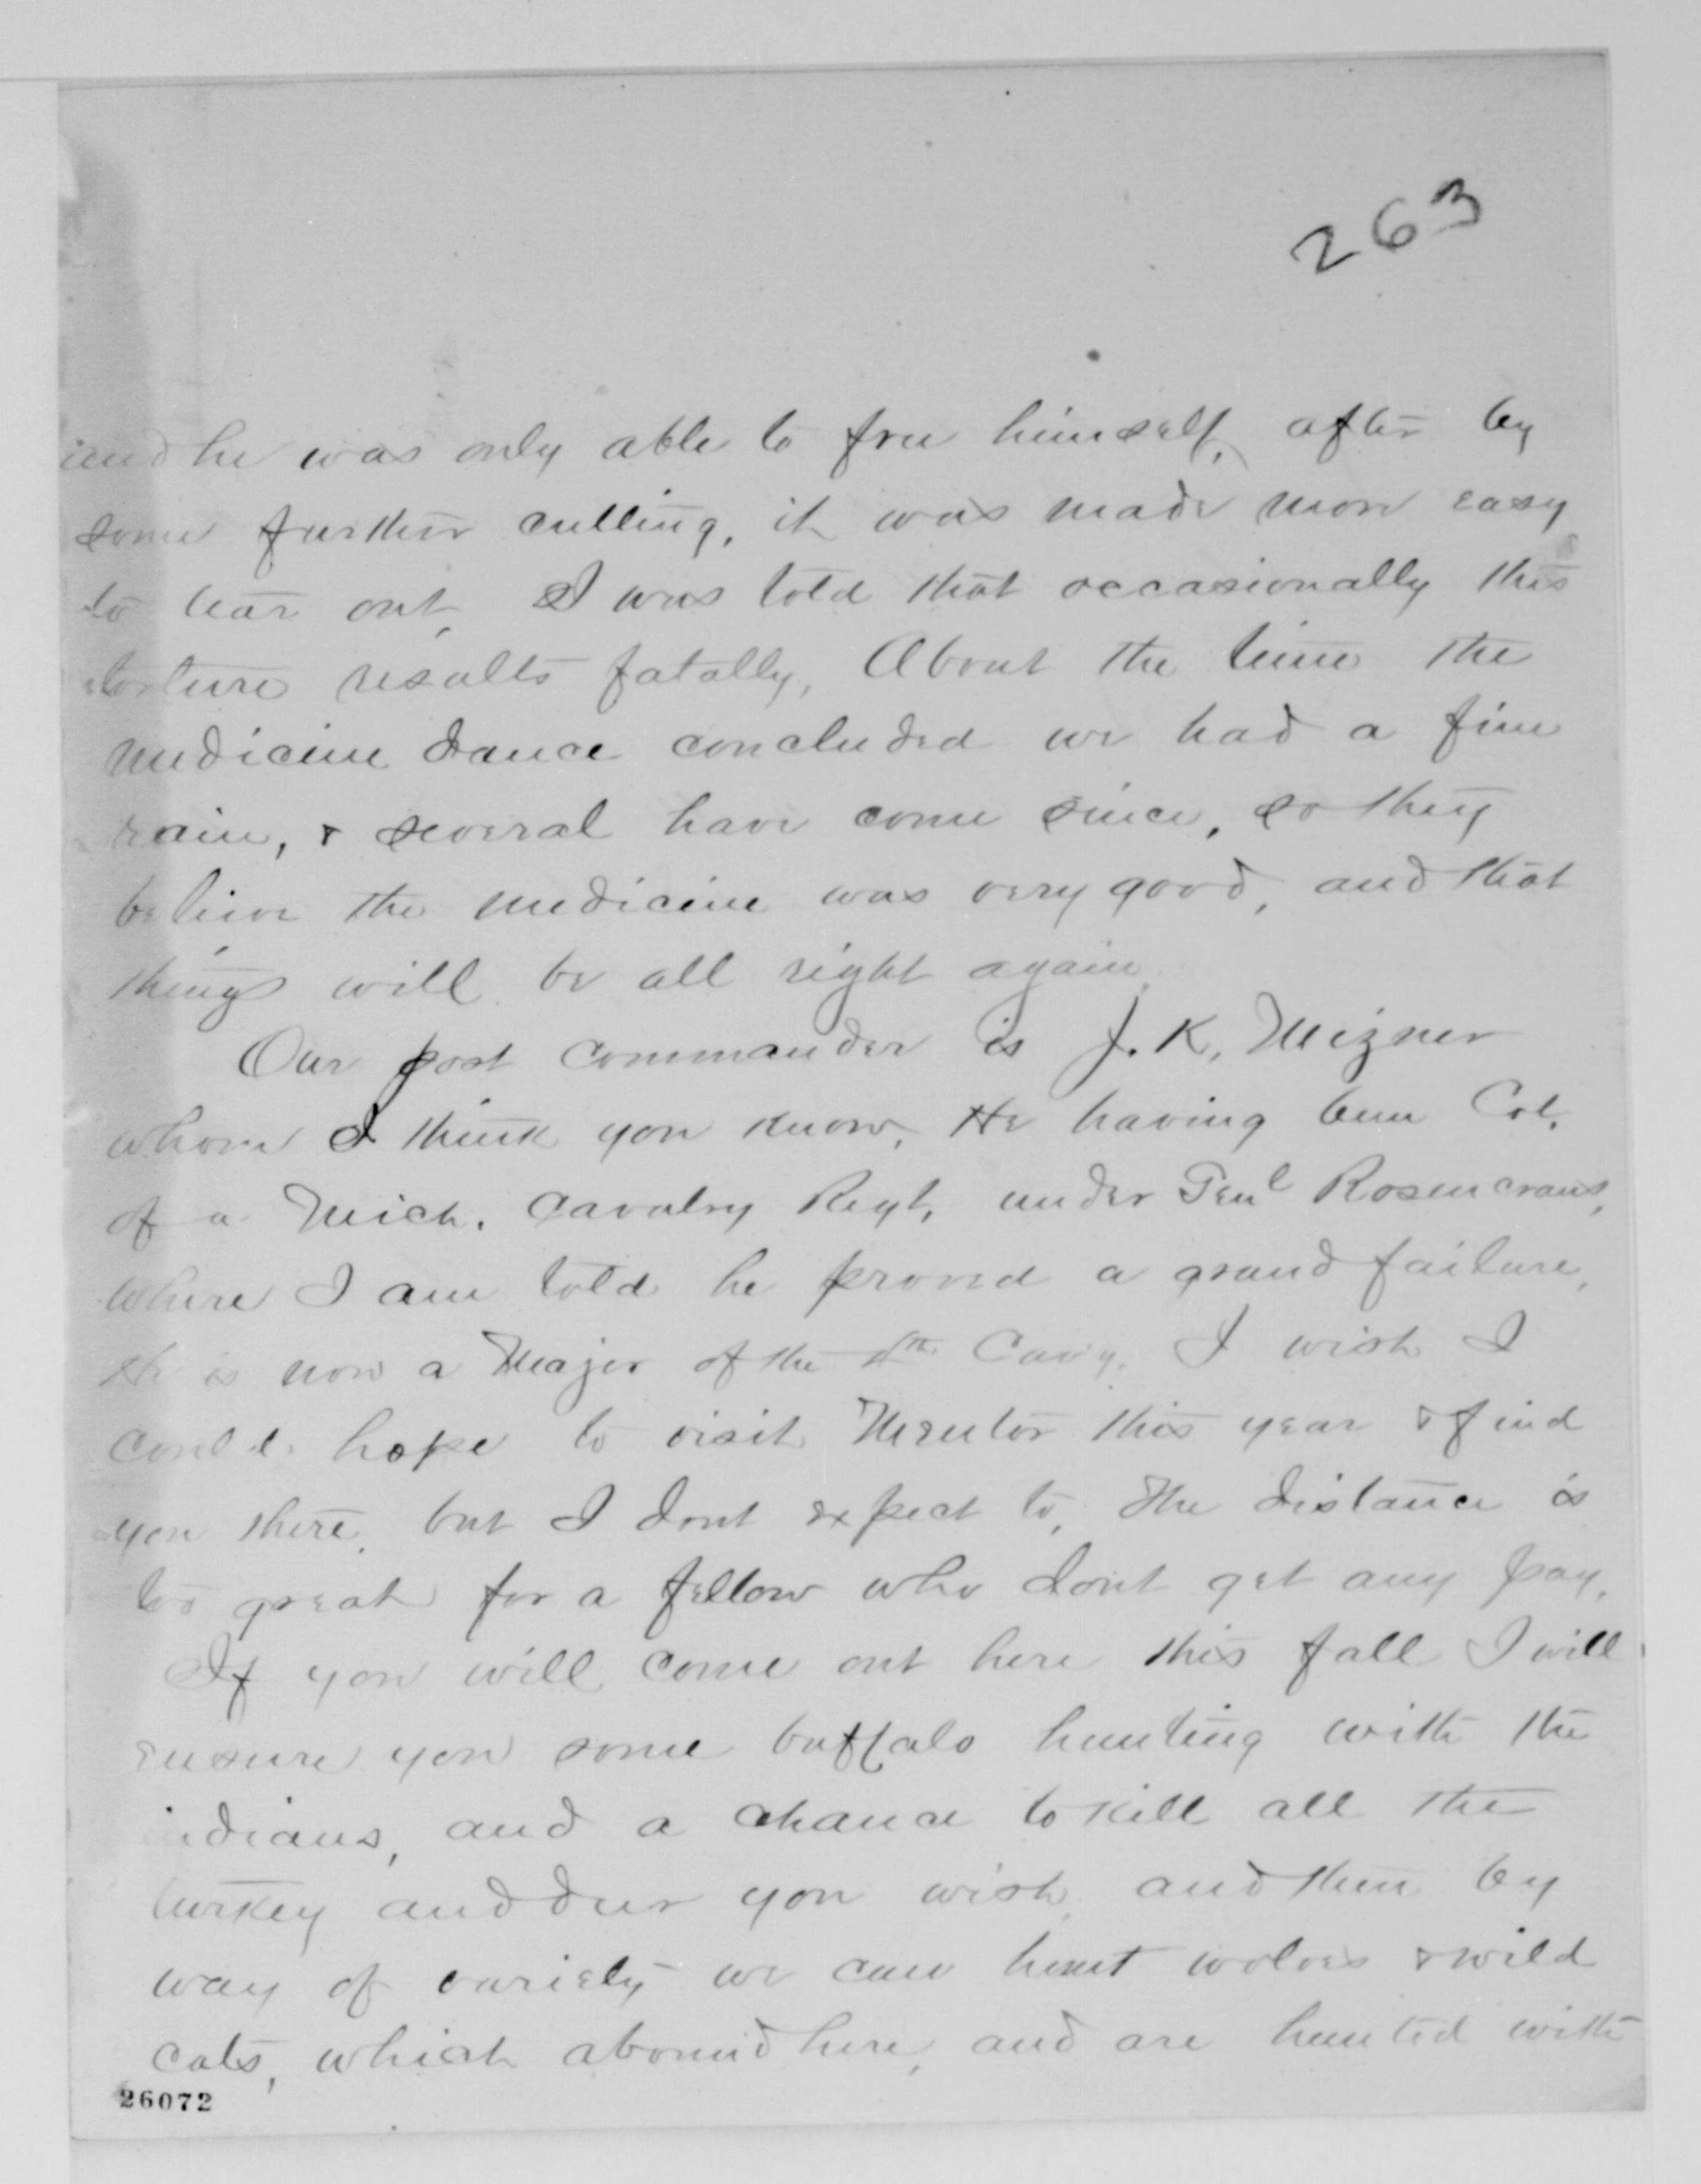 263
and he was only able to free himself, after by
some further cutting, it was made more easy
to tear out, I was told that occasionally this
torture results fatally, About the time the
medicine dance concluded we had a fine
rain, & several have come since, so they
believe the medicine was very good, and that
things will be all right again.
Our post commander is J. K. Mizner
whom I think you know, He having been Col.
of a Mich. Cavalry Regt, under Genl Rosencrans,
where I am told he proved a grand failure,
He is now a Major of the 4th Cav'y. I wish I
could hope to visit Mentor this year & find
you there, but I dont expect to, The distance is
too great for a fellow who dont get any pay,
If you will come out here this fall I will
ensure you some buffalo hunting with the
indians, and a chance to kill all the
turkey and deer you wish, and then by
way of variety we can hunt wolves & wild
cats, which abound here, and are hunted with
26072